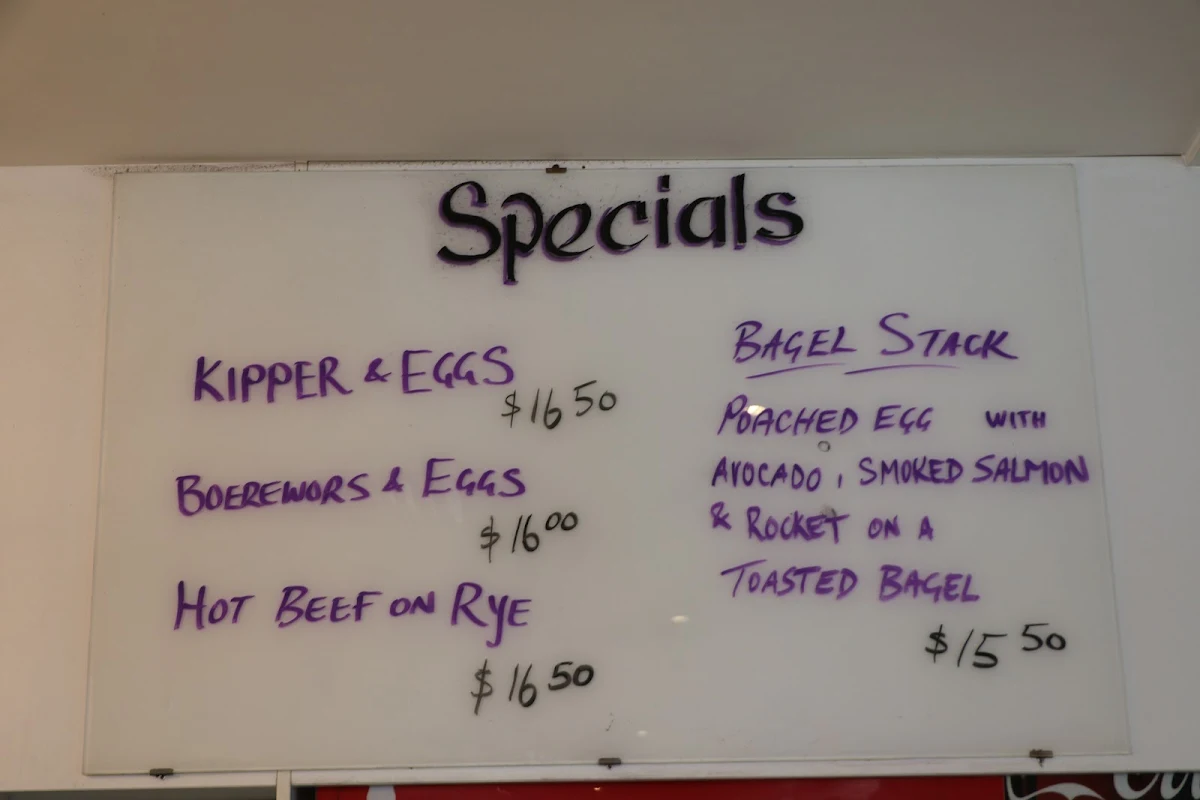 Specials
KIPPER & EGGS
$16 50
BOEREWORS & EGGS
$16 00
HOT BEEF ON RYE
$16 50
BAGEL STACK
POACHED EGG WITH
AVOCADO, SMOKED SALMON
& ROCKET ON A
TOASTED BAGEL
$15 50